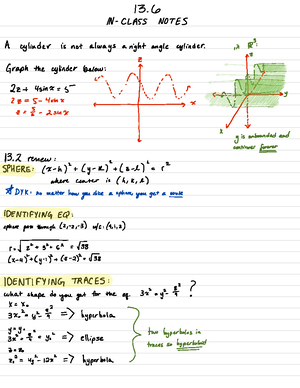 13.6
IN-CLASS NOTES
A cylinder is not always a right angle cylinder.
Graph the cylinder below:
2z + 4sinx = 5
2z = 5 - 4sinx
z = 5/2 - 2sinx
z
x
in R³:
z
y
x
y is unbounded and continues forever
13.2 review:
SPHERE: (x-h)² + (y-k)² + (z-l)² = r²
where center is (h, k, l)
DYK: no matter how you slice a sphere, you get a circle
IDENTIFYING EQ:
sphere pass through
r = √
IDENTIFYING TRACES:
what shape do you get for the eq. 3x² = y² - z²/4 ?
x = x₀
=> hyperbola
y = y₀
=> ellipse
z = z₀
=> hyperbola
two hyperbolas in
traces so hyperboloid